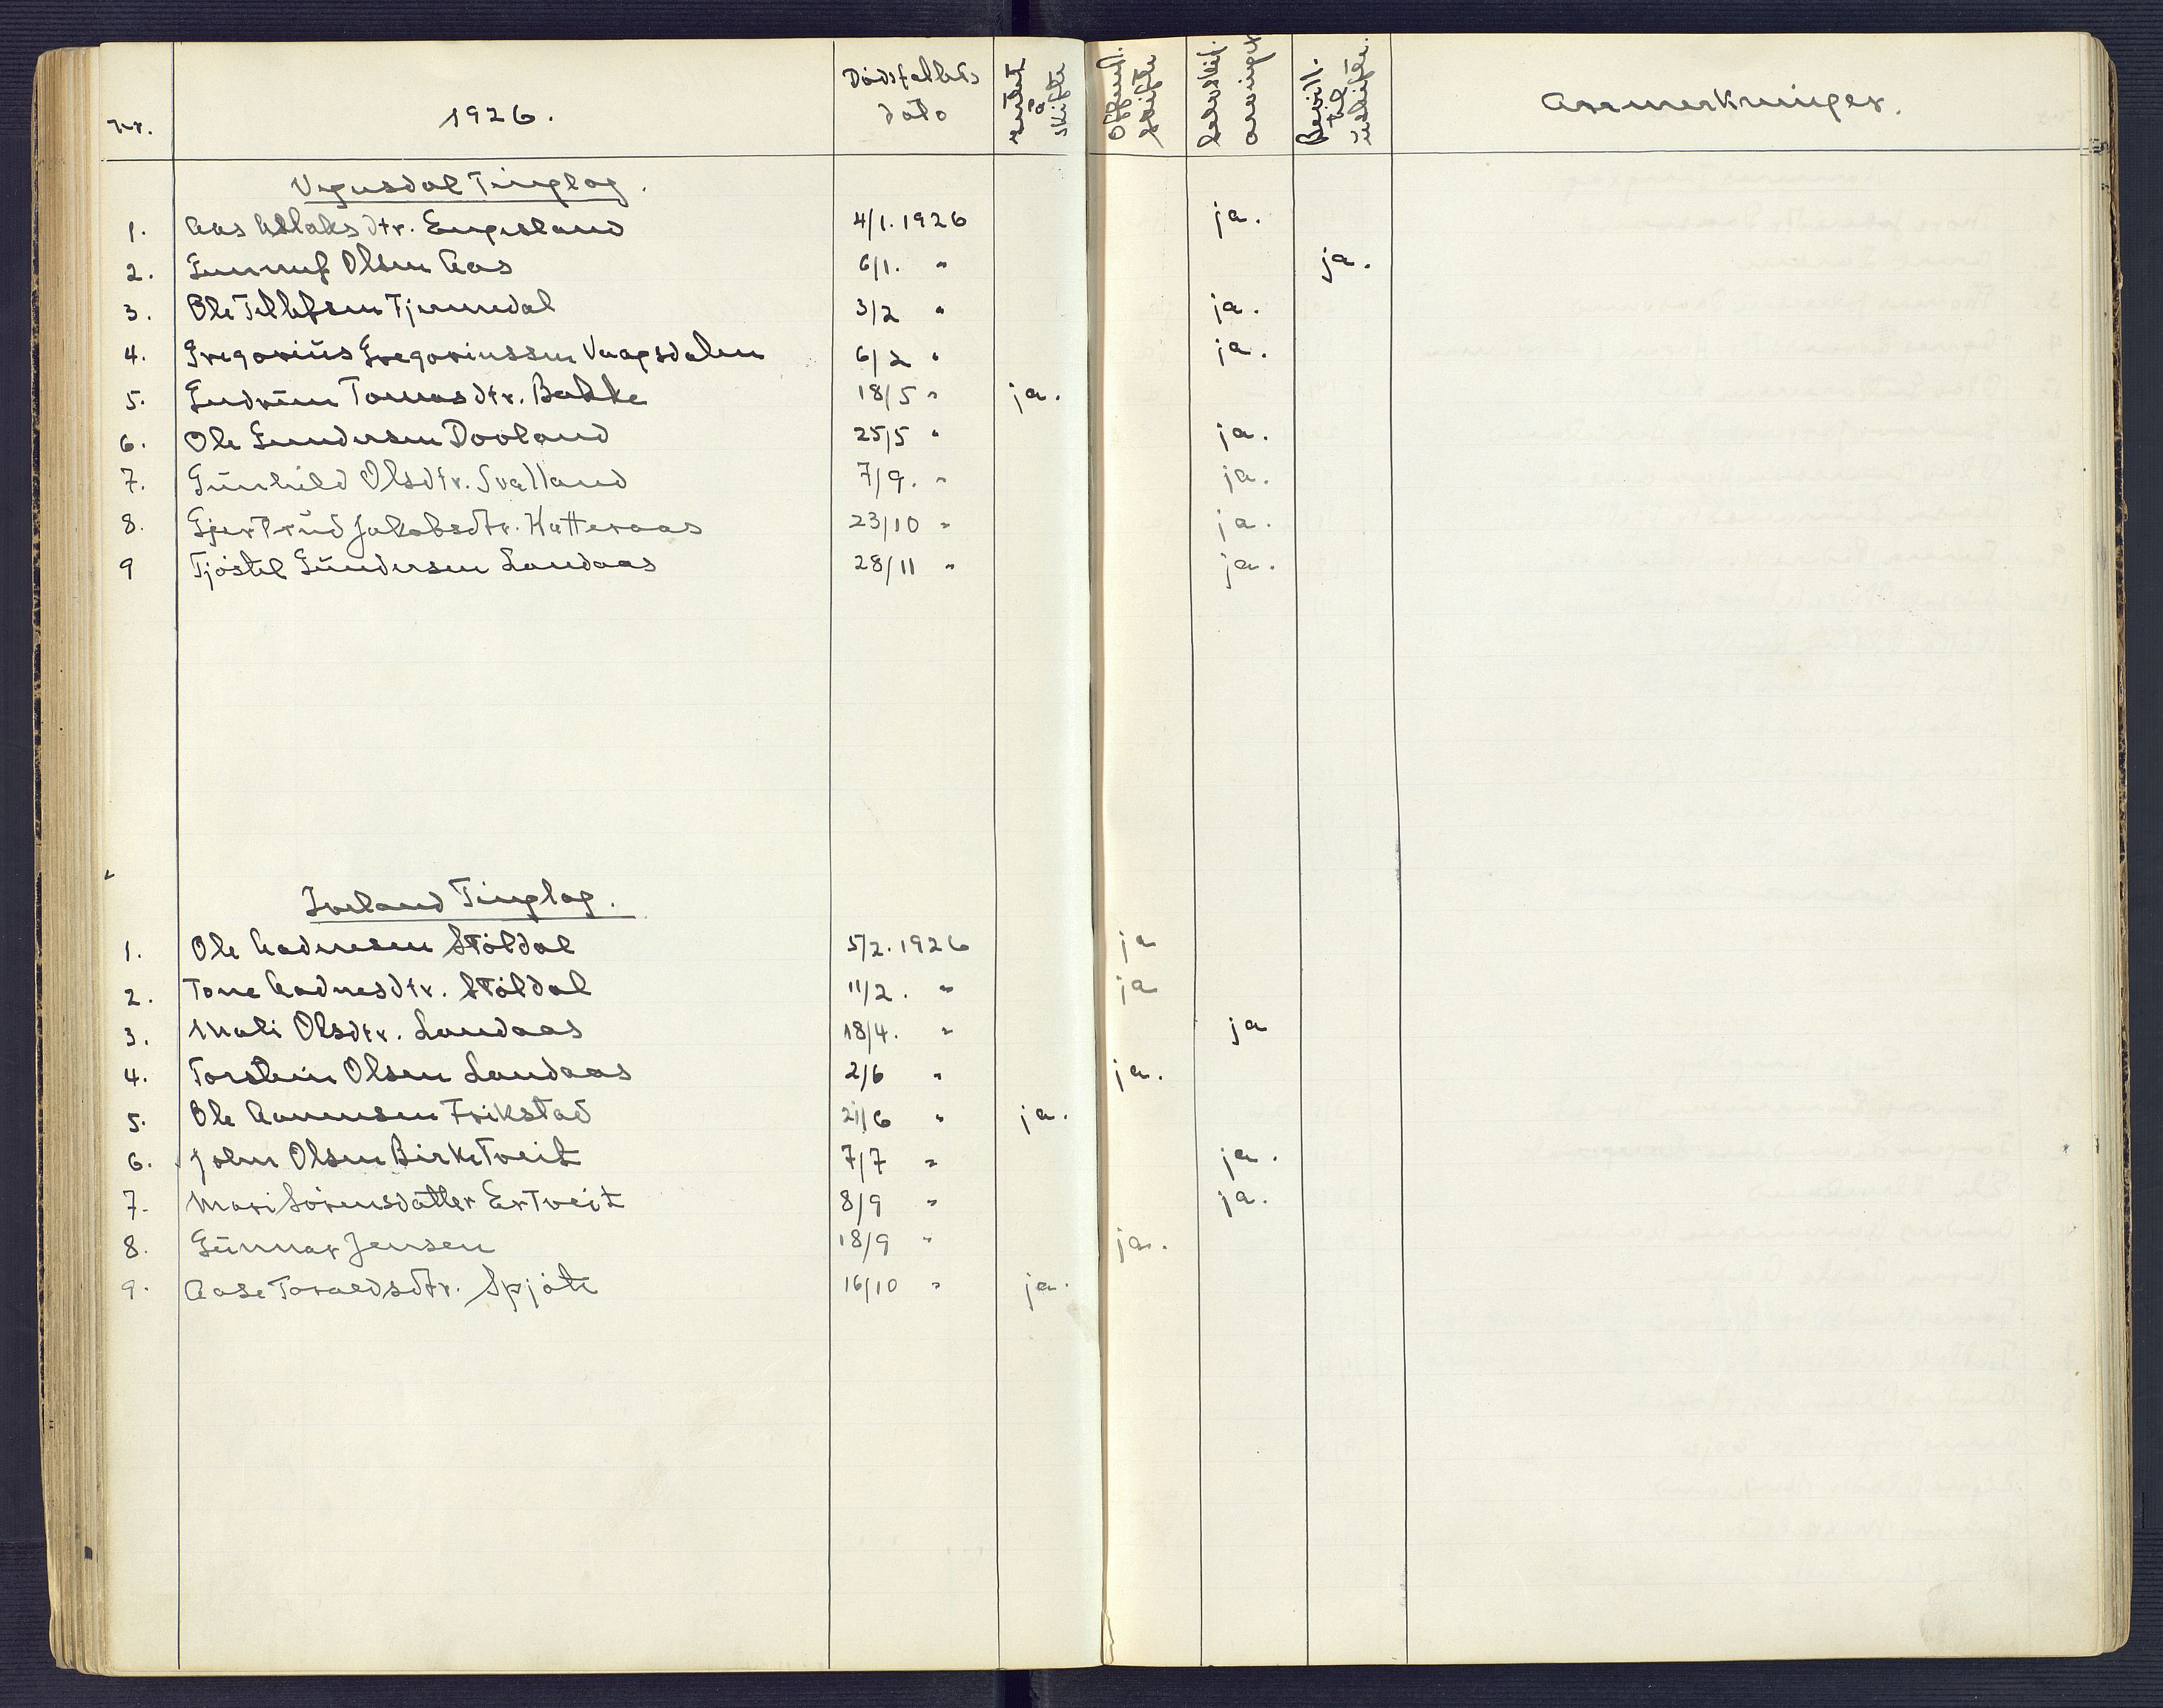 nr.
1926.
Dödsfallets
dato
intet
å
skifte
Offentl.
skifte
selvskift.
arvinger
Bevill.
til
uskifte.
Anmerkninger.
Vegusdal Tinglag.
1. Aas Aslaksdtr. Engesland 4/1. 1926 ja.
2. Gunnuf Olsen Aas 6/1. " ja.
3. Ole Tellefsen Tjermedal 3/2 " ja.
4. Gregorius Gregoriussen Vaagsdalen 6/2 " ja.
5. Gudrun Tomasdtr. Bakke 18/5 " ja.
6. Ole Gundersen Dovland 25/5 " ja.
7. Gunhild Olsdtr. Svalland 7/9. " ja.
8. Gjertrud Jakobsdtr. Hatteraas 23/10 " ja.
9 Tjöstel Gundersen Landaas 28/11 " ja.
Iveland Tinglag.
1. Ole Aadnesen Stöldal 5/2. 1926 ja
2. Tone Aadnesdtr. Stöldal 11/2. " ja
3. Mali Olsdtr. Landaas 18/4. " ja
4. Torstein Olsen Landaas 2/6 " ja.
5. Ole Aanensen Frikstad 21/6 " ja.
6. John Olsen Birketveit 7/7 " ja.
7. Mari Sörensdatter Ertveit 8/9 " ja.
8. Gunnar Jensen 18/9 " ja.
9. Aase Toraldsdtr. Spjöte 16/10 " ja.